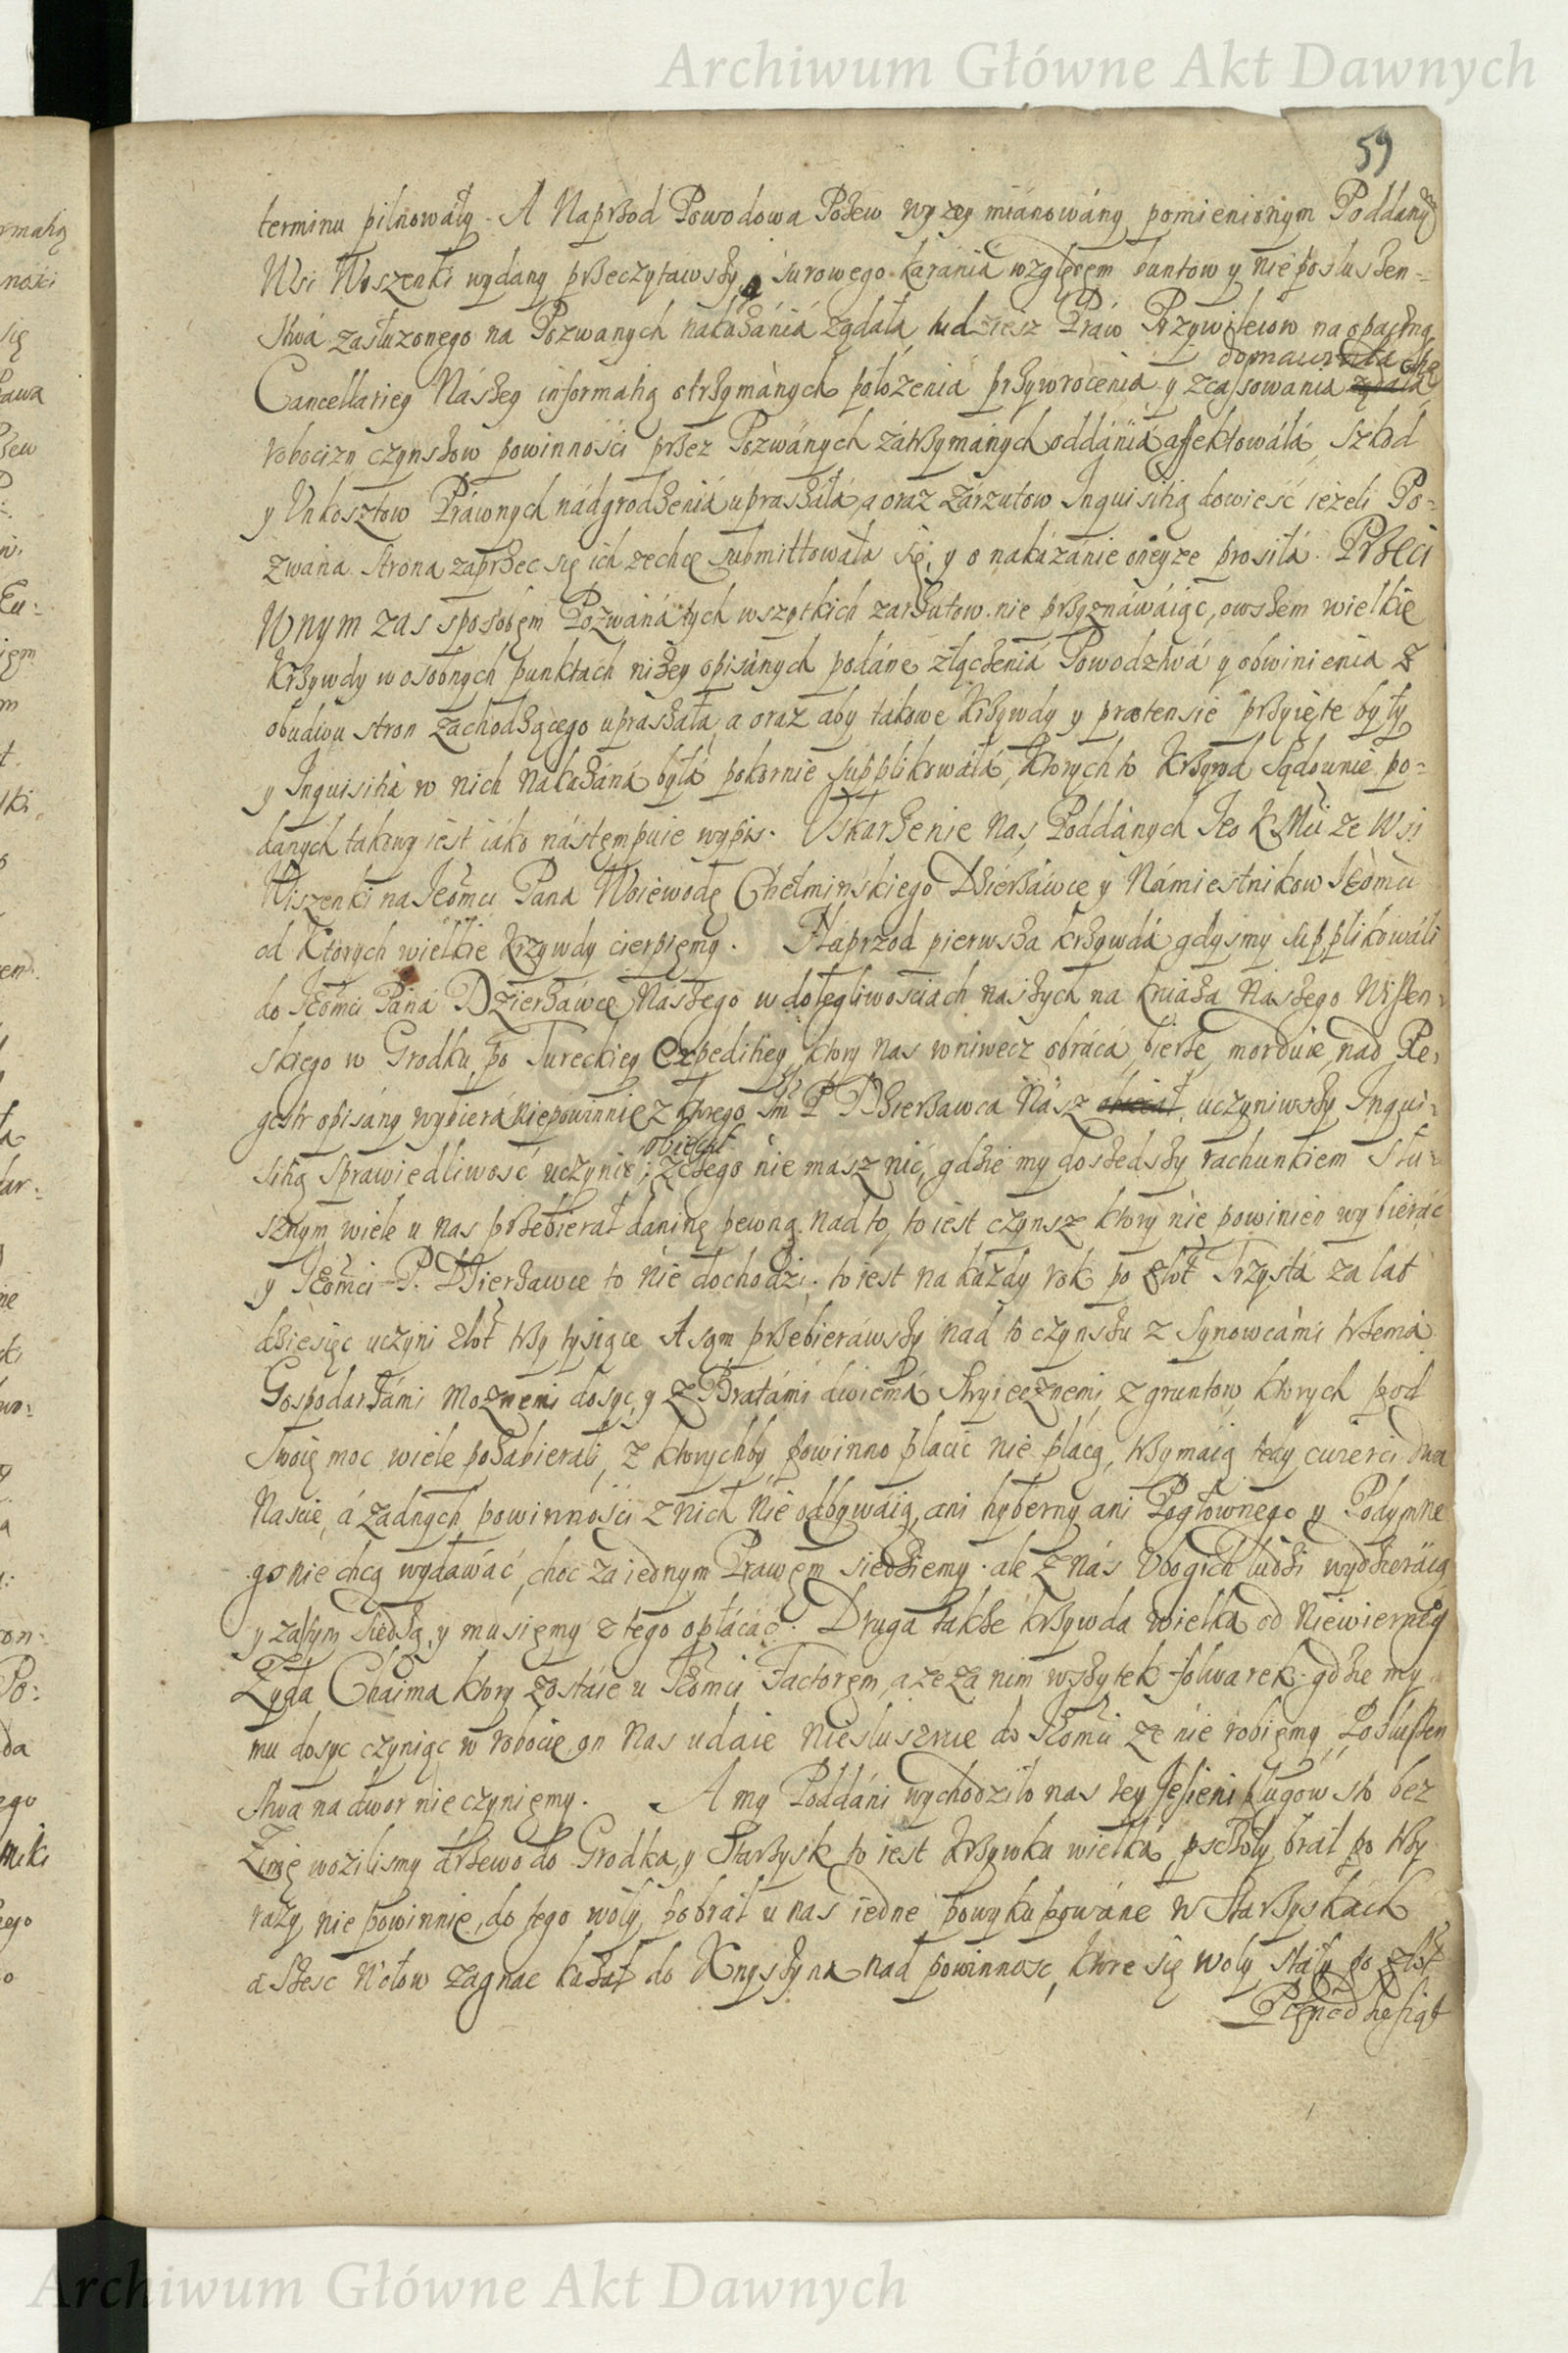 Archiwum Główne Akt Dawnych
59
terminu pilnowały. A Naprzod Powodowa Pozew wyzey mianowány pomienionym Poddany
Wsi Wyszenki wydany przeczytawszy, surowego karania względem buntow y nieposłuszen-
stwá zasłuzonego na Pozwanych nakazániá ządała, tudziesz Praw Przywileiow na opaczną
domawiała się
Cancellariey Nászey informatią otrzymànych położenia przywrocenia y zcassowania ządała
robocizn czynszow powinnosci przez Pozwánych zátrzymánych oddániá affektowálá, szkod
y Unkosztow Práwnych nádgrodzeniá upraszálá, a oraz zárzutow Inquisitią dowiesć ieżeli Po-
zwana strona zaprzec się ich zechce submittowała się, y o nakázánie oneyze prosiłá. Przeci
Wnym zas sposobem Pozwáná tych wszytkich zarzutow nie przyznáwáiąc, owszem wielkie
Krzywdy w osobnych punktach niżey opisànych podáne złączeniá Powodztwá y obwinienia z
obudwu stron zachodzącego upraszała, a oraz aby takowe krzywdy y praetensie przyięte były
y Inquisitia w nich nakazáná byłá pokornie supplikowáłá, ktorych to krzywd Sądownie po-
danych takowy iest iáko nástęmpuie wypis. Uskarzenie nas Poddánych Jeo K Mći ze Wsi
Wiszenki na Jeomci Pana Woiewodę Chełmińskiego Dzierzáwcę y Námiestnikow Jeomci
od ktorych wielkie krzywdy cierpięmy. Naprzod pierwsza krzywdá gdysmy supplikowáli
do Jeomci Pána Dzierzáwcę Naszego w dolegliwosciach naszych na kniaza Naszego Wissen-
skiego w Grodku po Tureckiey expeditiey, ktory nas wniwecz obráca, bierze, morduie, nad Re-
gestr opisány wybierá niepowinnie z ktorego Im P Dzierzawca Nász obiecał uczyniwszy Inqui-
obiecał
sitią sprawiedliwosć uczynic; z tego nie masz nic, gdzie my doszedszy rachunkiem słu-
sznym wiele u nas przebierał daninę pewną nad to, to iest czynsze ktory nie powinien wybieráć
y Jeomci P. Dzierzawce to nie dochodzi. to iest na kazdy rok po złot Trzystá za lat
dziesięc uczyni złot trzy tysiące A sam przebieráwszy nad to czynszu z synowcámi trzemá
Gospodarzámi moznemi dosyc, y z Bratámi dwiemá stryiecznemi, z gruntow, ktorych pod
swoię moc wiele pozabierali, z ktorychby powinno płacic nie płacą, trzymáią tedy cwierci dwa
Nascie, á zadnych powinnosci z nich nie odbywáią, ani hyberny ani Pogłownego y Podymne
go nie chcą wydawáć, choc za iednym Prawem siedziemy. ale z nás Ubogich ludzi wydzieráią
y zasym siedzą, y musięmy z tego opłácác. Druga takze krzywda wielka od Niewiernég
Zyda Chaima ktory zostáie u Jeomci Factorem, a ze za nim wszytek folwarek. gdzie my
mu dosyc czyniąc w robocie on nas udaie niesłusznie do Jeomci ze nie robięmy Posłuszen
stwa na dwor nie czynięmy. A my Poddáni wychodziło nas tey Jesieni pługow sto bez
Zimę wozilismy drzewo do Grodka, y Starzysk to iest krzywka wielka, pszczoły brał po trzy
razy nie powinnie, do tego woły pobrał u nas iedne powykupowáne w Starzyskach
a szesc Wołow zagnac kazał do Knyszyna nad powinnosc, ktore się woły stáły po złot
Pięnedziesiąt
Archiwum Główne Akt Dawnych